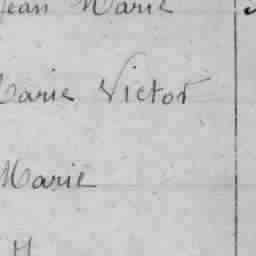 Jean Marie
Marie Victor
Marie